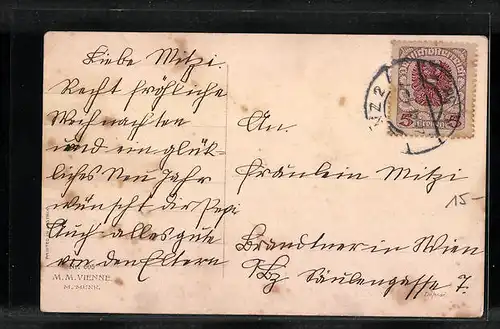 Liebe Mitzi.
Recht fröhliche
Weihnachten
und ein glük-
liches Neu Jahr
wünscht dir Pepi
Auch alles gute
von den Eltern
An.
Fräulein Mitzi
Brandtner in Wien
Säulengasse 7.
15-
5
5
M. M. VIENNE
M. MUNK.